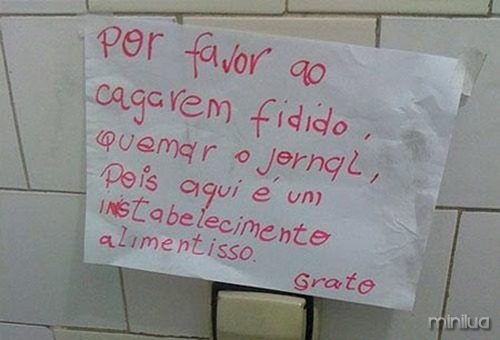 por favor ao
cagarem fidido,
quemar o jornal,
Pois aqui é um
instabelecimento
alimentisso.
Grato
minilua